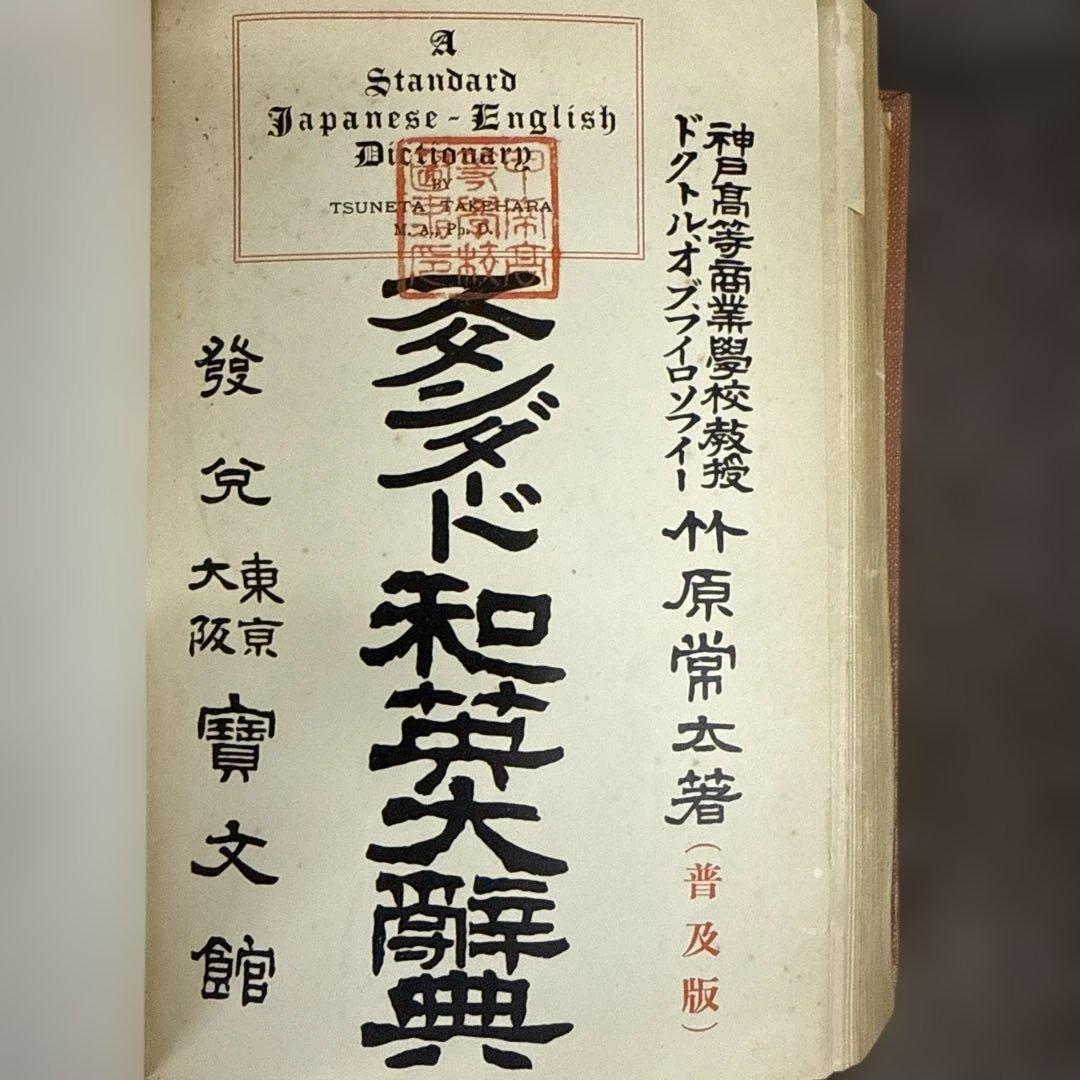 A
Standard
Japanese-English
Dictionary
BY
TSUNETA TAKEHARA
M. A., Ph. D.
甲南高
等學校
圖書印
神戸髙等商業學校教授
ドクトル、オブ、フイロソフイー
竹原常太著(普及版)
スタンダード和英大辭典
發兌
東京
大阪
寶文館